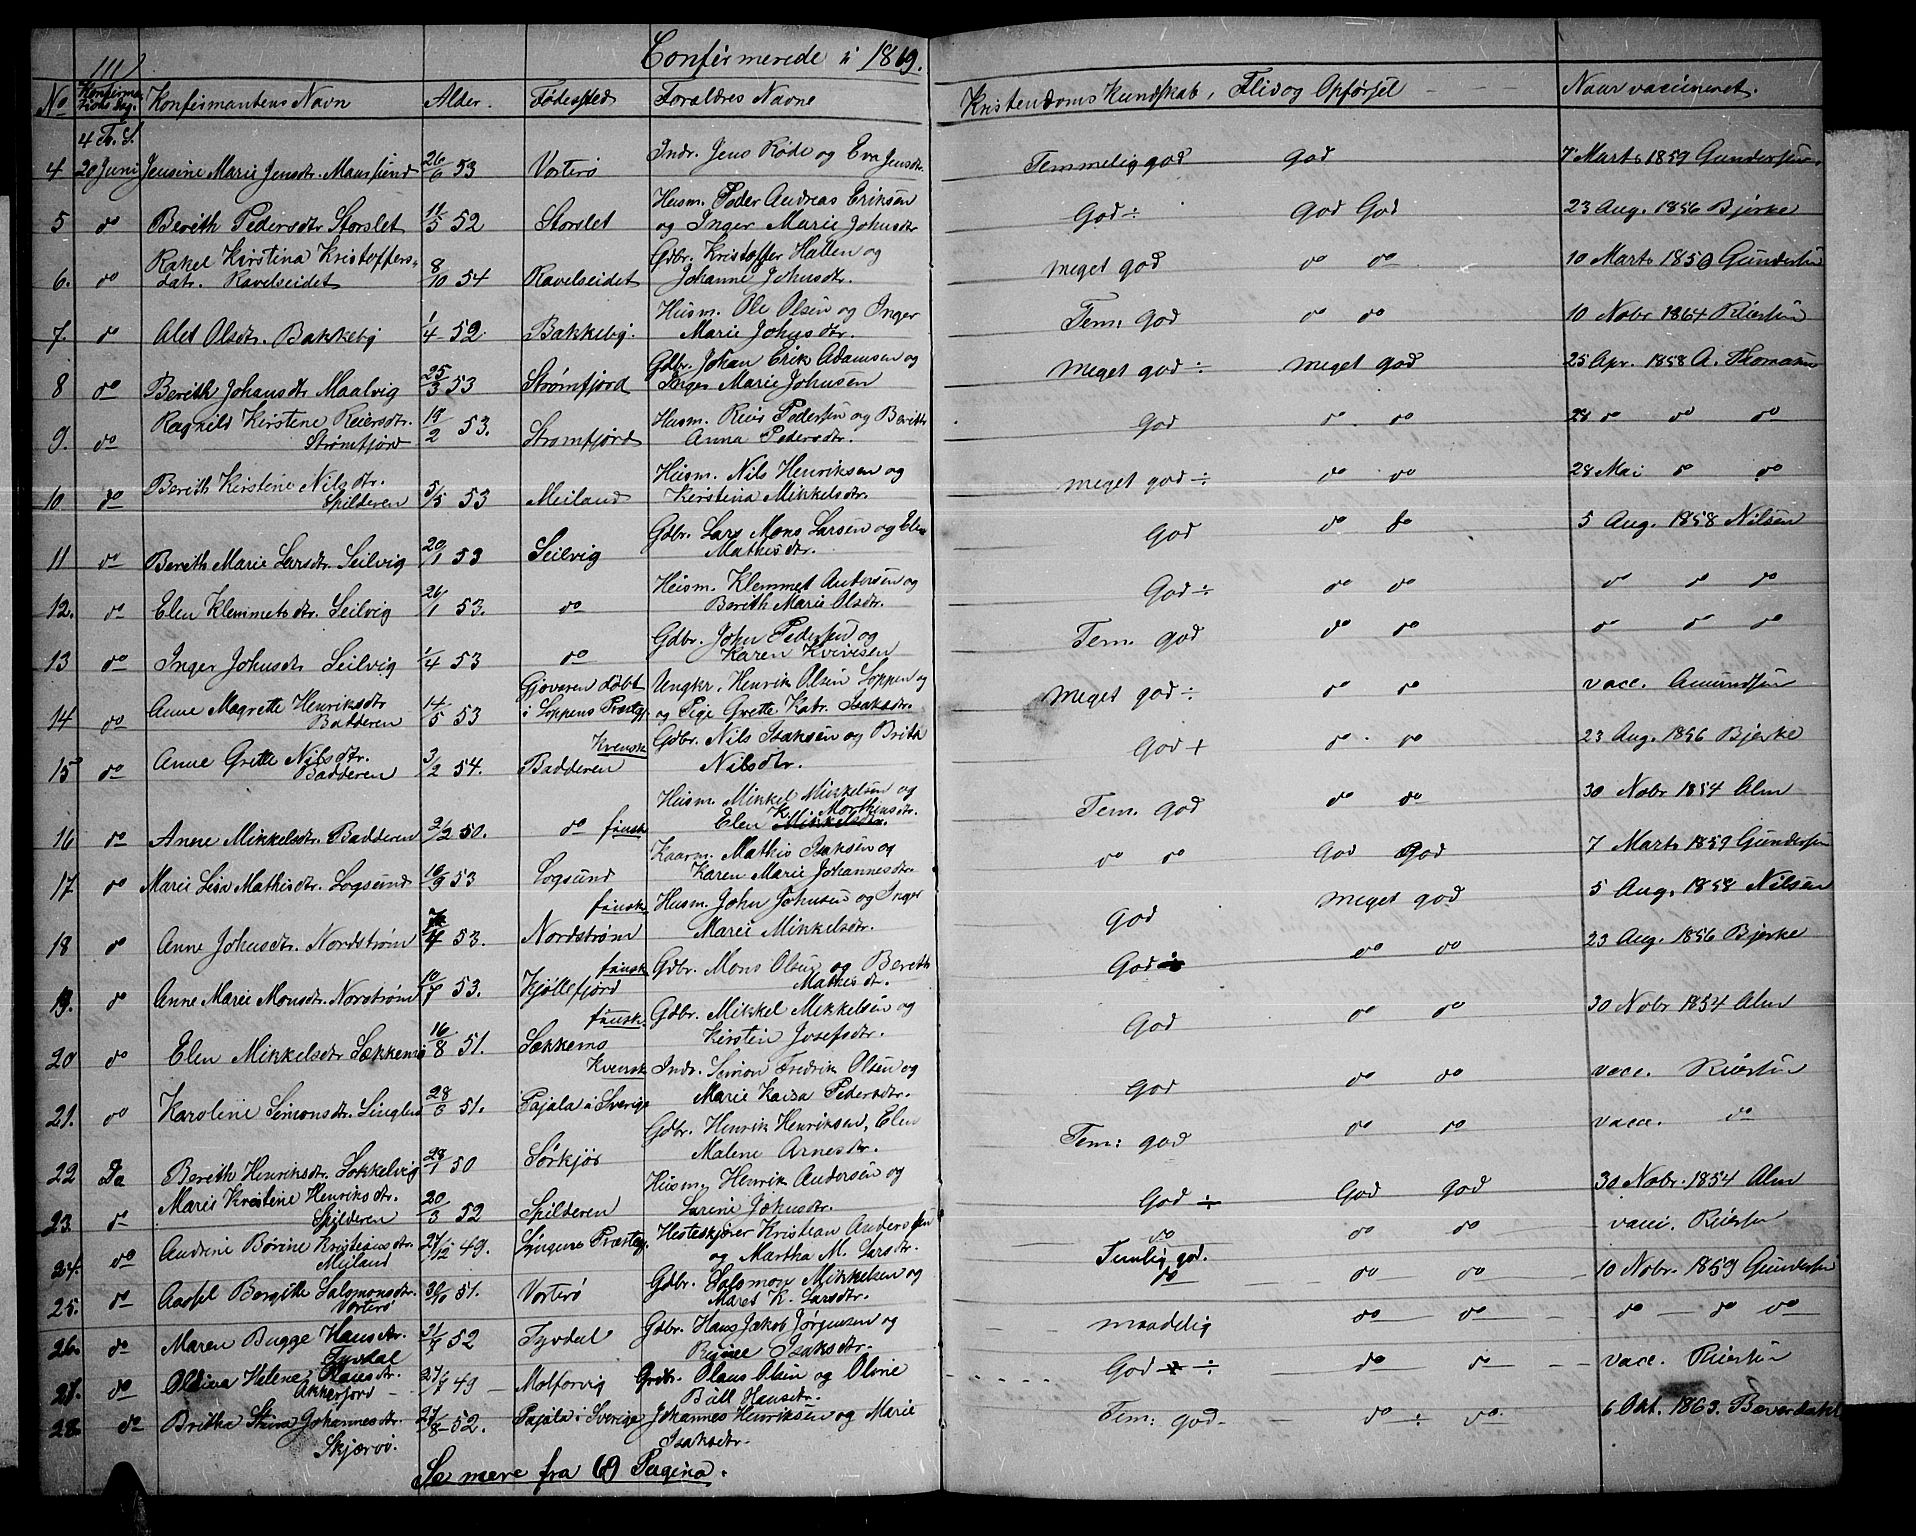 111/
Confirmerede i 1869.
No Konfirmations dag. Konfirmantens Navn Alder. Fødested Foraldres Navne Kristendoms Kundskab, Flid og Opførsel Naar vaccineret.
4 T. S.
4 20 Juni Jensine Marie Jensdtr. 26/6 53 Vorterø Indr. Jens Røde og Eva Jensdtr. Temmelig god God 7 Marts 1859 Gundersen
5 do Berith Pedersdtr Storslet 11/5 52 Storslet Husm. Peder Andreas Eriksen
og Inger Marie Johnsdtr God ÷ God God 23 Aug. 1856 Bjerke
6. do Rakel Kirstina Kristoffers-
datr. Ravelseidet 8/10 54 Ravelseidet Gdbr. Kristoffer Hallen og
Johanne Johnsdtr. meget god do do 10 Marts 1859 Gundersen
7. do Alet Olsdtr. Bakkeby 1/4 52. Bakkeby. Husm. Ole Olsen og Inger
Marie Johnsdtr. Tem: god do do 10 Nobr 1864 Riersen
8 do Berith Johansdtr Maalvig 25/3 53 Strømfjord Gdbr. Johan Erik Adamsen og
Inger Marie Johnsen meget god ÷ meget god 25 Apr. 1858 A. Thomasen
9. do Ragnild Kirstene Reiersdtr.
Strømfjord 19/2 53. Strømfjord Husm. Reier Pedersen og Berith
Anna Pedersdtr. God do do 28 do do do
10 do Berith Kirstine Nilsdtr.
Spilderen 5/5 53 Meiland Husm. Nils Henriksen og
Kirstina Mikkelsdtr. meget god ÷ do do 28 Mai do do
11 do Berith Marie Larsdtr. Seilvig 20/1 53 Seilvig Gdbr. Lars Mons Larsen og Elen
Mathisdtr. God do do 5 Aug. 1858 Nilsen
12. do Elen Klemmetsdtr. Seilvig 26/1 53. do Husm. Klemmet Andersen og
Berith Marie Olsdtr. God ÷ do do do do do
13 do Inger Johnsdtr Seilvig 1/4 53 do Gdbr. John Pedersen og
Karen Kvivesen Tem. god do do do do do
14 do Anne Magrette Henriksdtr
Badderen 14/5 53 Gjøvaren døbt
i Loppens Præstegj. Ungkr. Henrik Olsen Loppen og
og Pige Grette Katr. Isaksdtr. meget god ÷ do do vacc. Amundsen
15 do Anne Grette Nilsdtr.
Badderen 3/2 54. Kvensk
Badderen Gdbr. Nils Isaksen og Brith
Nilsdtr. God + do do 23 Aug. 1856 Bjerke
16 do Anne Mikkelsdtr. Badderen 3/2 50. do finsk Husm. Mikkel Mikkelsen og
Elen K. Morthensdtr. Mikkelsdtr. Tem. god do do 30 Nobr 1854 Alm
17 do Marie Lisa Mathisdtr. Logsund 10/9 53 Logsund Kaarm. Mathis Isaksen og
Karen Marie Johannesdtr. do do God God 7 Marts 1859 Gundersen
18 do Anne Johnsdtr. Nordstrøm 4 53. finsk
Nordstrøm Husm. John Johnsen og Inger
Marie Mikkelsdtr. God meget god 5 Aug. 1858 Nilsen
19. do Anne Marie Monsdtr. Norstrøm 10/7 53. finsk
Kjøllefjord Gdbr. Mons Olsen og Berith
Mathisdtr. God ÷ do do 23 Aug. 1856 Bjerke
20 do Elen Mikkelsdtr Sækkemo 16/8 51. finsk
Sækkemo Gdbr. Mikkel Mikkelsen og
Kirsten Josefsdtr. God do do 30 Nobr 1854 Alm
21. do Karoline Simonsdtr. 28 51. Kvensk
Pajala i Sverige Indr. Simon Fredrik Olsen og
Marie Kaisa Pedersdtr. God do do vacc. Riersen
22 Do Berith Henriksdtr. Sokkelvig 28/1 50 Sørkjos Gdbr. Henrik Henriksen, Elen
Malene Arnesdtr. Tem: god do do vacc. do
23. do Marie Kristine Henriksdtr.
Spilderen 20/3 52 Spilderen Husm. Henrik Andersen og
Sarine Johnsdtr. God ÷ God God 30 Nobr. 1854 Alm
24. do Andrine Børine Kristiansdtr.
Meiland 27/12 49. Lyngens Præsteg. Hesteskjører Kristian Anderssen
og Martha M. Larsdtr. do
Temlig god. do do vacc. Riersen
25. do Aasel Bergitte Salomonsdtr.
Vorterø 51. Vorterø Gdbr. Salomon Mikkelsen og
Maret K. Larsdtr. do do do 10 Nobr. 1859 Gundersen
26. do Maren Bugge Hansdtr.
Tyvdal 52 Tyvdal Gdbr. Hans Jakob Jørgensen og
Isaksdtr. maadelig do do do do do
27. do Oldina Helene Olausdtr.
Akkerfjord 49 Molforvig Gdbr. Olaus Olsen og Oline
Hansdtr. God ÷ do do vacc. Riersen
28. do Britha Johannesdtr.
Skjærvø. 27/8 52. Pajala i Sverige Johannes Henriksen og Marie
Isaksdtr. Tem: god do ÷ do 6 Okt. 1863.
Se mere fra 69 Pagina.